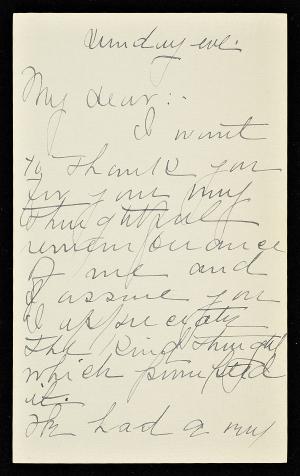 Sunday eve.
My dear:-
I want
to thank you
for your very
thoughtful
rememberance
of me and
I assure you
I appreciate
the kind thought
which prompted
it.
We had a very